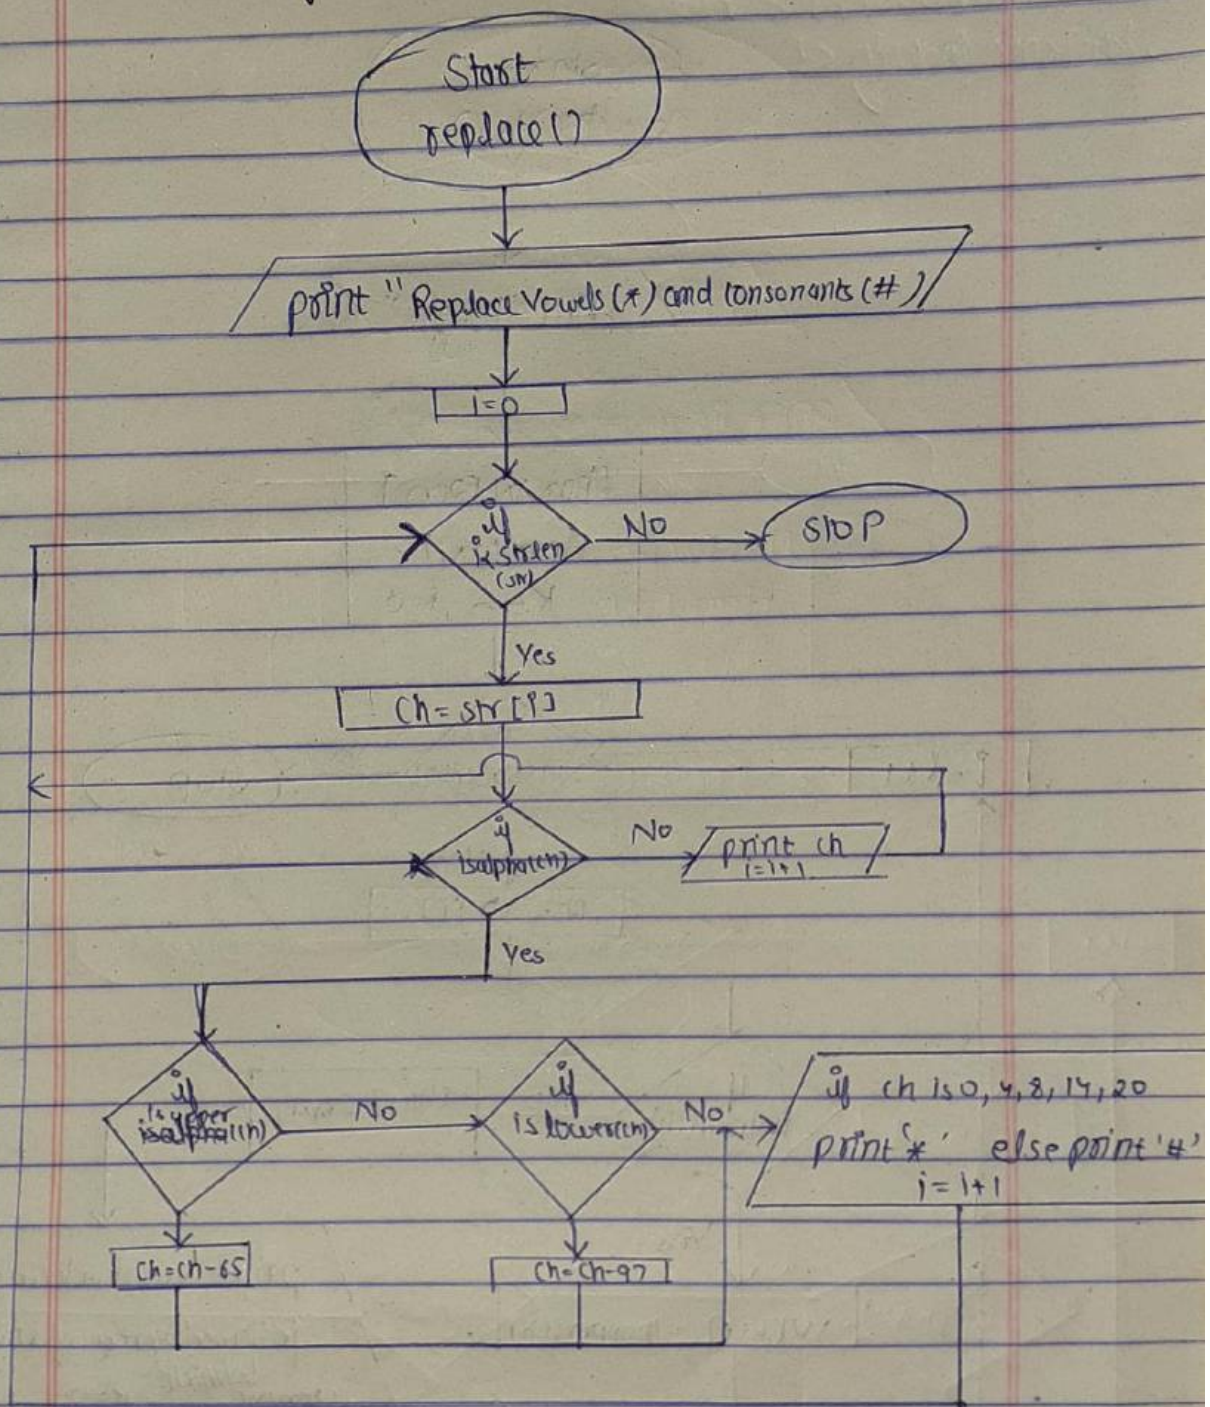 Start
replace()
print "Replace Vowels (*) and consonants (#)
i=0
if
i<strlen
(str)
No
Stop
Yes
Ch = str[i]
if
isalpha(ch)
No
print ch
i=i+1
Yes
if
isupper
(ch)
No
if
islower(ch)
No
if ch is 0, 4, 8, 14, 20
print '*' else print '#'
i = i+1
Ch=Ch-65
Ch=Ch-97